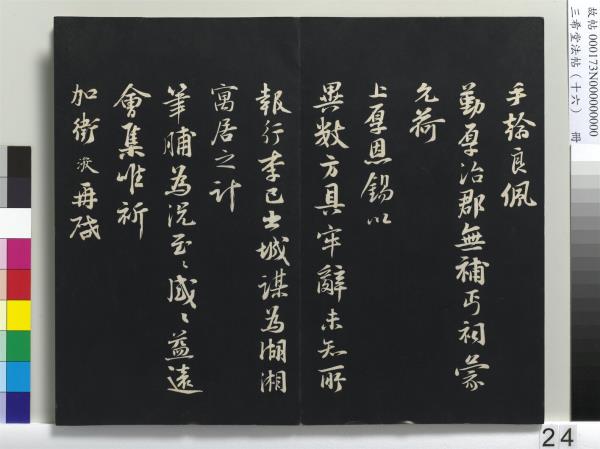 故帖 000173N000000000
三希堂法帖（十六） 冊
手翰良佩
勤厚治郡無補丐祠蒙
允荷
上厚恩錫以
異數方具牢辭未知所
報行李已出城謀為湖湘
寓居之計
筆脯為況至〻感〻益遠
會集唯祈
加衛浚再啟
24